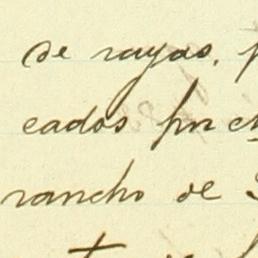 de rayas, p
cados por e
rancho de S